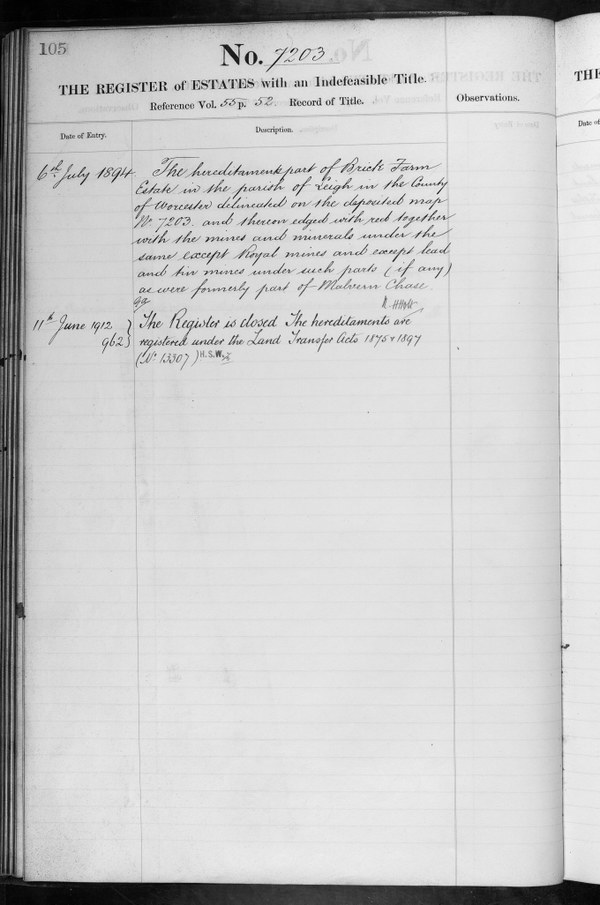 105
No. 7203
THE REGISTER of ESTATES with an Indefeasible Title.
Reference Vol. 55 p. 52. Record of Title.
Observations.
Date of Entry.
Description.
6th July 1894
The hereditaments part of Brick Farm
Estate in the parish of Leigh in the County
of Worcester delineated on the deposited map
No. 7203. and thereon edged with red together
with the mines and minerals under the
same except Royal mines and except lead
and tin mines under such parts (if any)
as were formerly part of Malvern Chase.
11th June 1912
962
The Register is closed The hereditaments are
registered under the Land Transfer Acts 1875 & 1897
(No. 13307) H.S.W.
THE
Date of